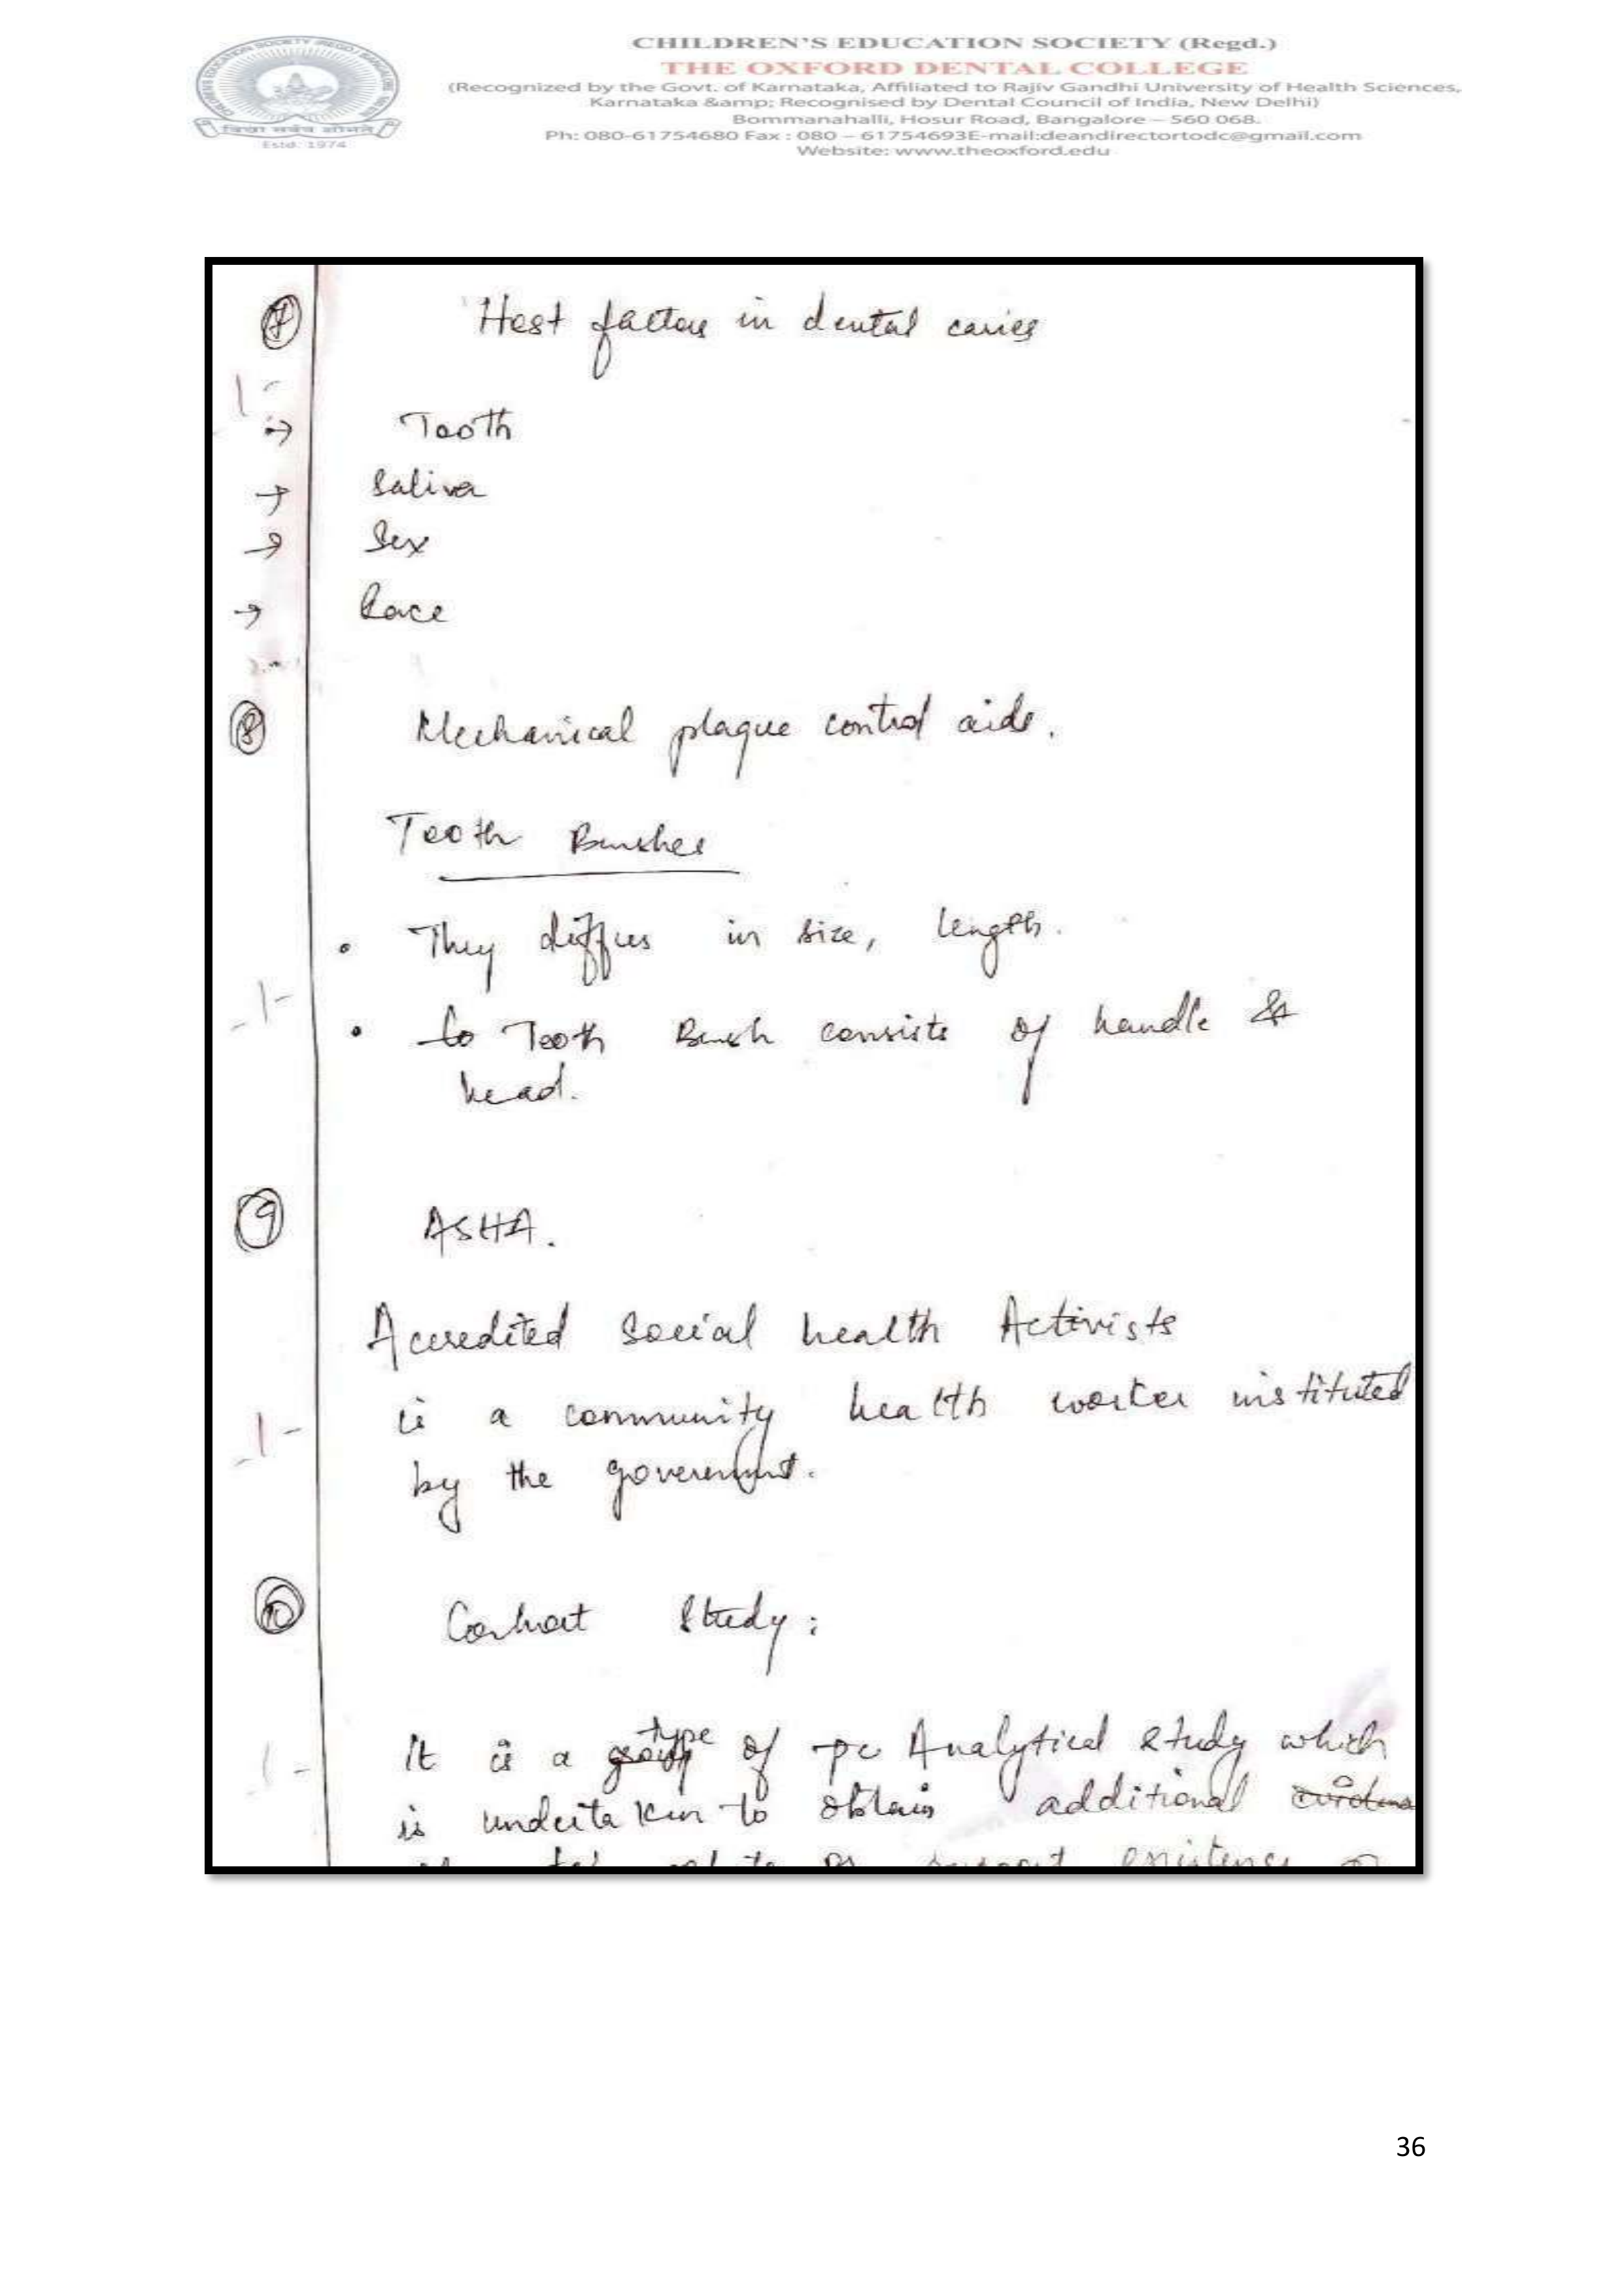 CHILDREN'S EDUCATION SOCIETY (Regd.)
THE OXFORD DENTAL COLLEGE
(Recognized by the Govt. of Karnataka, Affiliated to Rajiv Gandhi University of Health Sciences,
Karnataka &amp; Recognised by Dental Council of India, New Delhi)
Bommanahalli, Hosur Road, Bangalore – 560 068.
Ph: 080-61754680 Fax : 080 – 61754693E-mail:deandirectortodc@gmail.com
Website: www.theoxford.edu
Estd. 1974
7 Host factors in dental caries
1-
→ Tooth
→ Saliva
→ Sex
→ Race
8 Mechanical plaque control aids.
Tooth Brushes
• They differs in size, length.
-1-
• to Tooth Brush consists of handle &
head.
9 ASHA.
Accredited Social health Activists
is a community health worker instituted
-1-
by the government.
10 Cohort Study:
It is a group type of Analytical study which
1-
is undertaken to obtain additional
existence
36